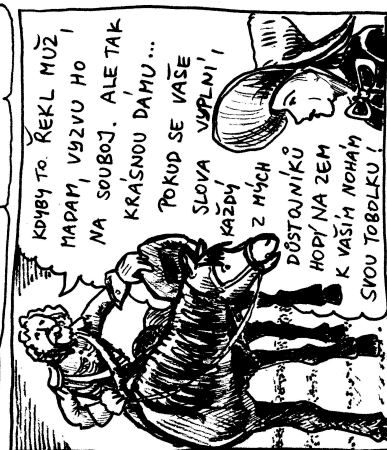 KDYBY TO ŘEKL MUŽ,
MADAM, VYZVU HO
NA SOUBOJ. ALE TAK
KRÁSNOU DÁMU...
POKUD SE VAŠE
SLOVA VYPLNÍ,
KAŽDÝ
Z MÝCH
DŮSTOJNÍKŮ
HODÍ NA ZEM
K VAŠIM NOHÁM
SVOU TOBOLKU!